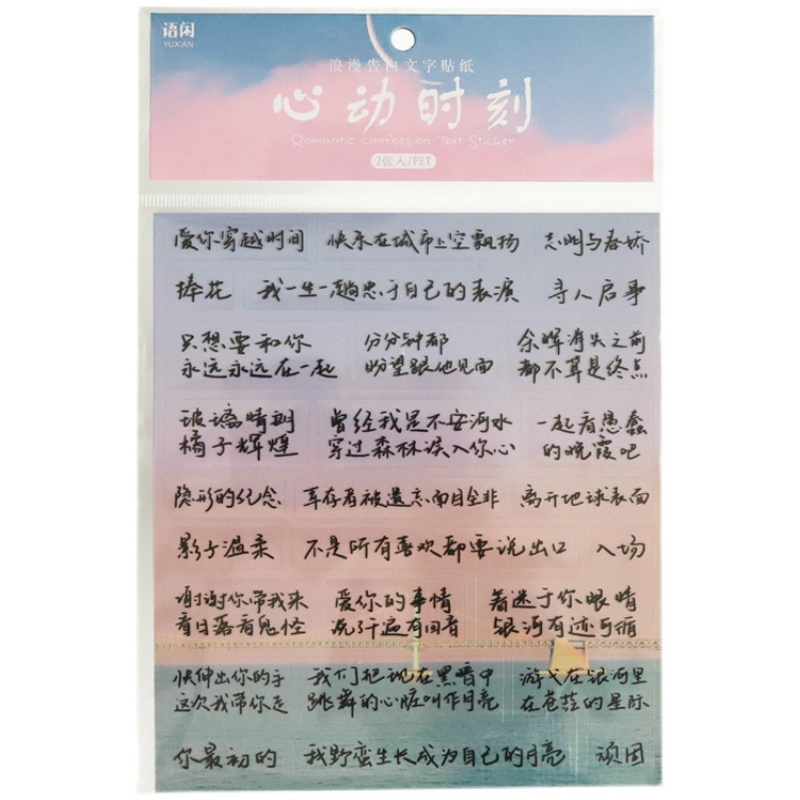 语闲
YUXIAN
浪漫告白文字贴纸
心动时刻
Romantic confession Text Sticker
2张入/PET
爱你穿越时间 快乐在城市上空飘扬 志明与春娇
捧花 我一生一趟忠于自己的表演 寻人启事
只想要和你 分分钟都 余晖消失之前
永远永远在一起 盼望跟他见面 都不算是终点
玻璃晴朗 曾经我是不安河水 一起看愚蠢
橘子辉煌 穿过森林误入你心 的晚霞吧
隐形的纪念 幸存者被遗忘面目全非 离开地球表面
影子温柔 不是所有喜欢都要说出口 入场
谢谢你带我来 爱你的事情 着迷于你眼睛
看日落看鬼怪 说了千遍有回音 银河有迹可循
快伸出你的手 我们把现在黑暗中 游弋在银河里
这次我带你走 跳舞的心脏叫作月亮 在苍茫的星际
你最初的 我野蛮生长成为自己的月亮 顽固